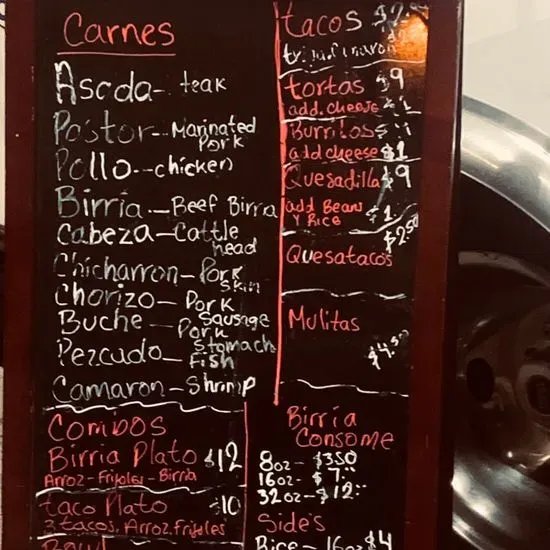 Carnes
Asada - teak
Pastor - Marinated
Pork
Pollo -- chicken
Birria - Beef Birria
Cabeza - Cattle
head
Chicharron - Pork
Skin
Chorizo - Pork
Sausage
Buche - Pork
Stomach
Pezcado - Fish
Camaron - Shrimp
Combos
Birria Plato $12
Arroz - Frijoles - Birria
taco Plato $10
3 tacos, Arroz, Frijoles
Bowl
tacos
tortas $9
add. cheese $1
Burritos
add cheese $1
Quesadilla $9
add Beans
y Rice $1
$2.50
Quesatacos
Mulitas
$4.50
Birria
Consome
8oz - $3.50
16oz - $7.--
32oz - $12.--
Side's
Rice - 16oz $4